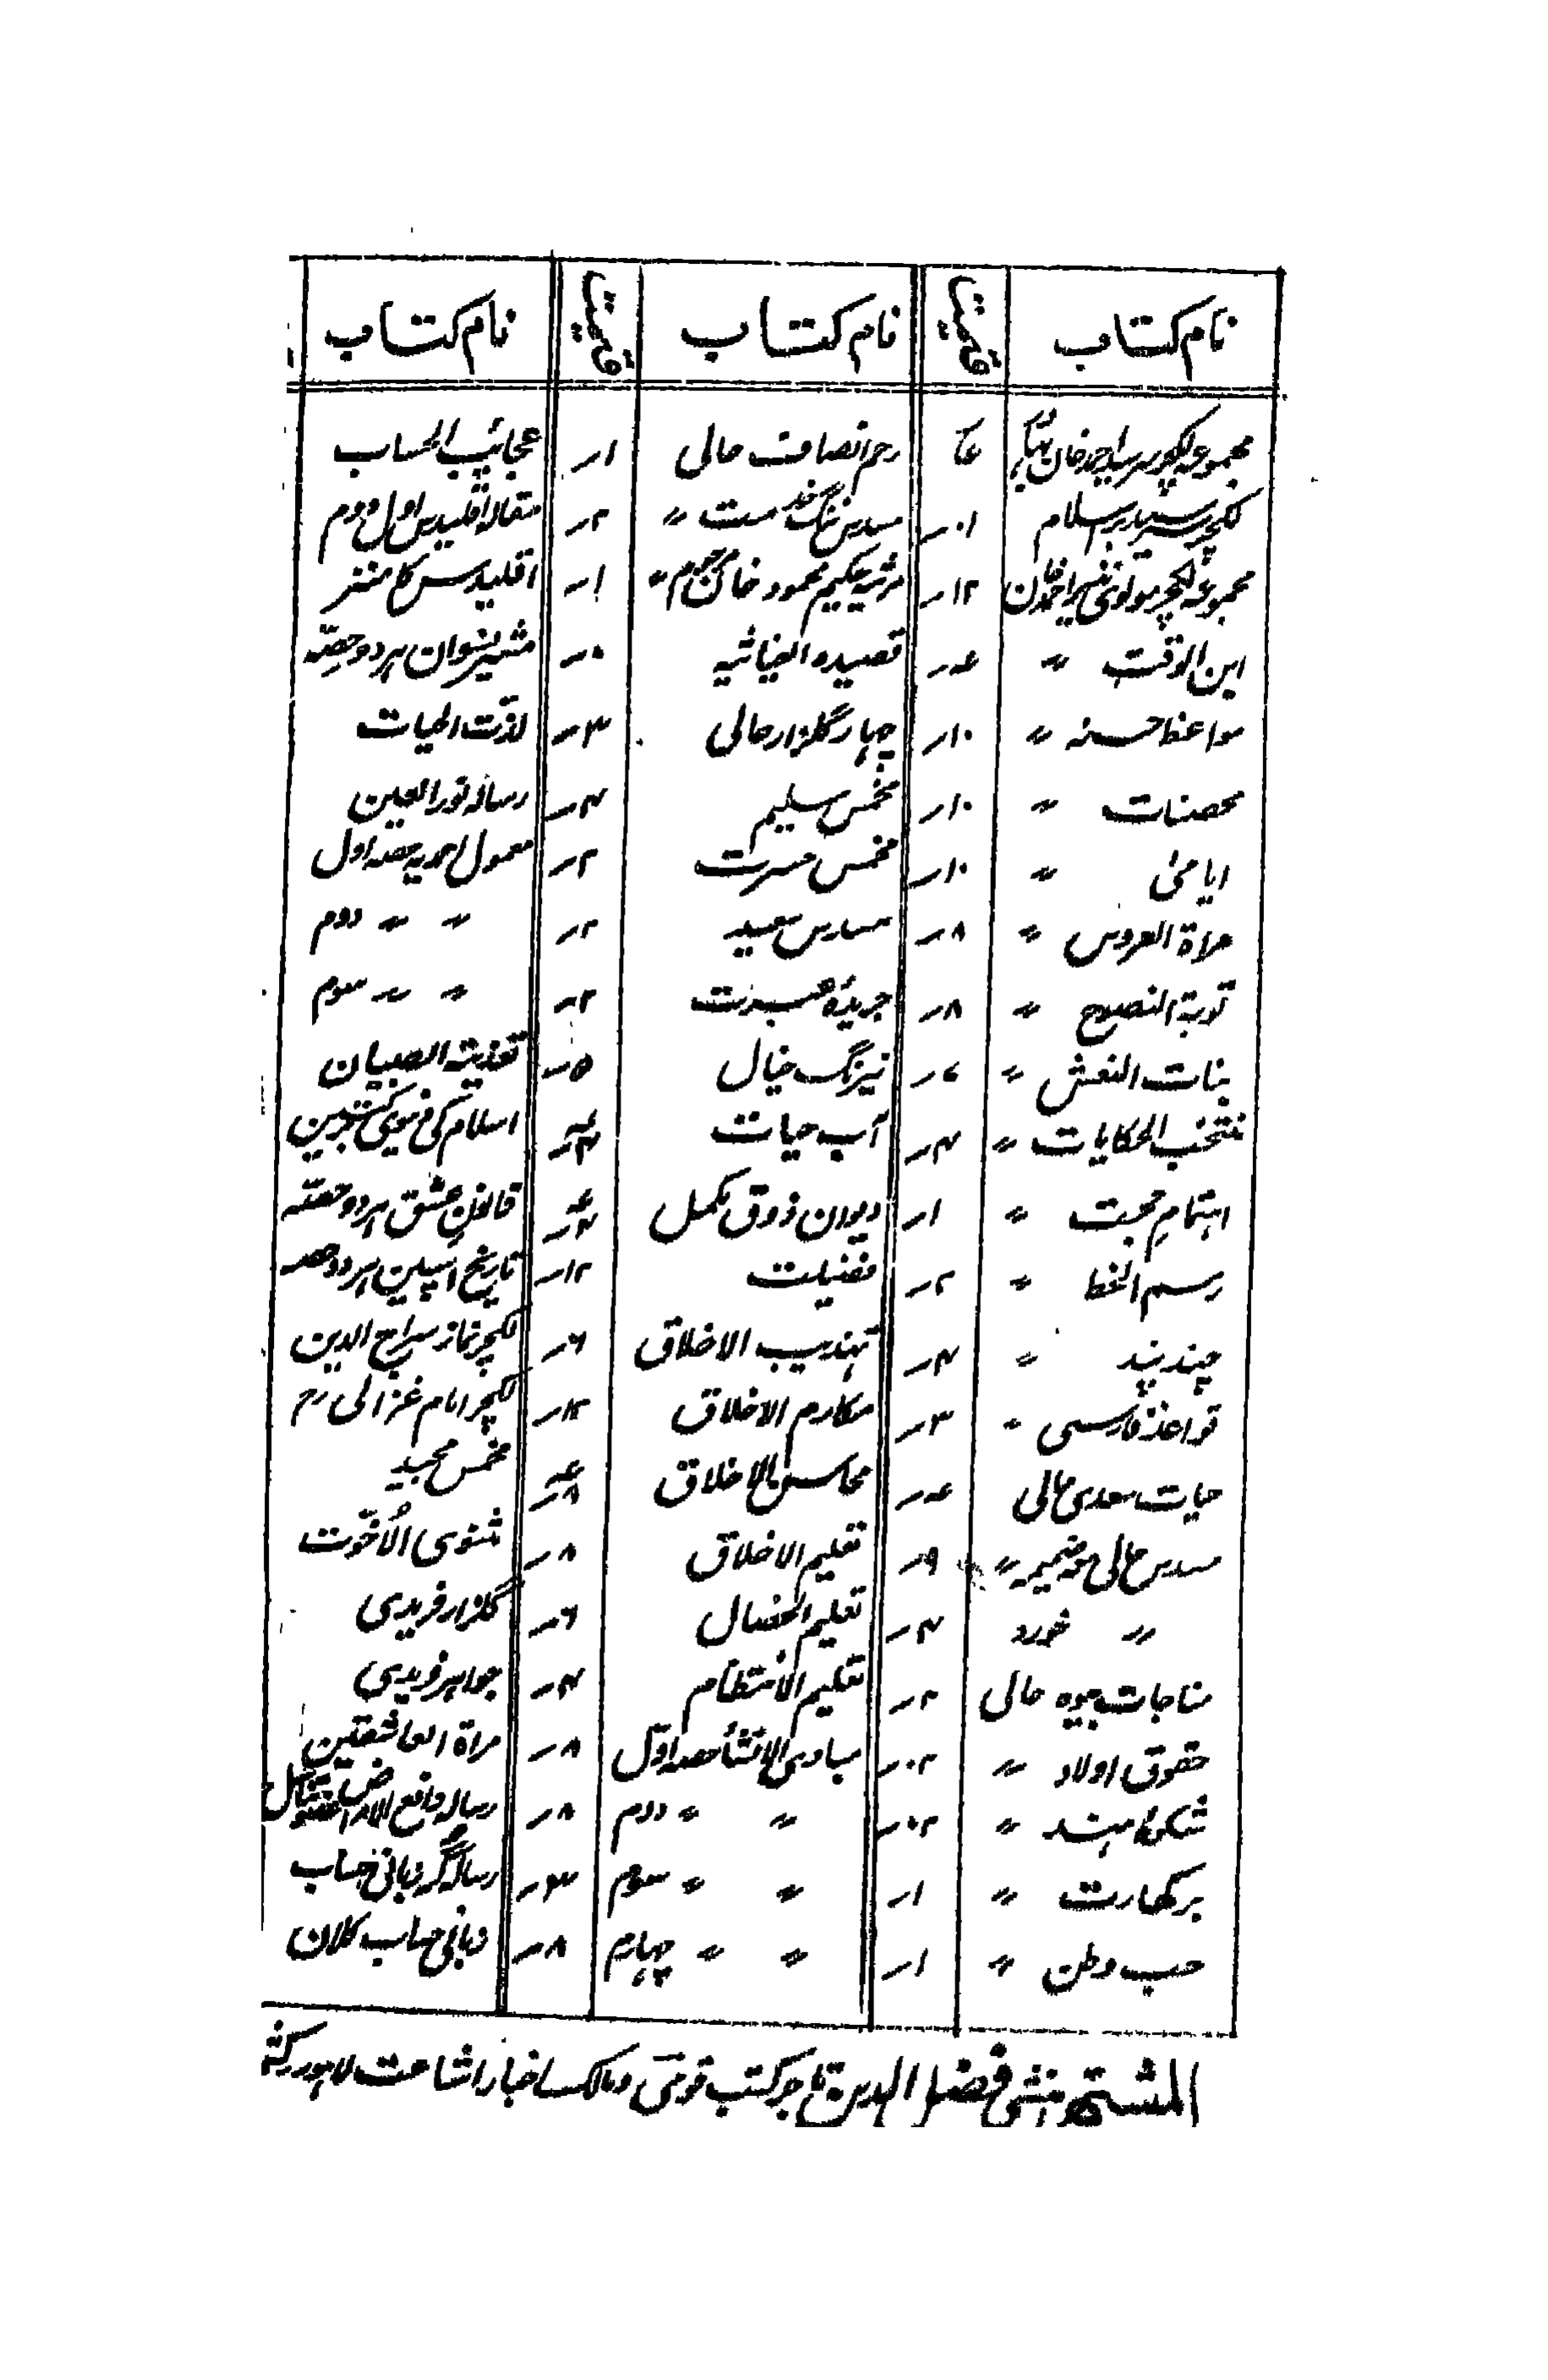 نام کتاب قیمت نام کتاب قیمت نام کتاب
مجموعہ لکچر سرسید احمد خان رحم انصاف حالی ۱ر عجائب الحساب
لکچر سرسید بر اسلام ۱۰ر مسدس ننگ خدمت 〃 ۲ر مقالہ اقلیدس اول و دوم
مجموعہ لکچر مولوی نذیر احمد خان ۱۲ر مرثیہ حکیم محمود خان مرحوم 〃 ۱ر اقلیدس کا منتر
ابن الوقت 〃 عہ ر قصیدہ الغیاثیہ ۰ر مشیر نسوان ہر دو حصہ
مواعظ حسنہ 〃 ۱۰ر چہار گلزار حالی ۳ر لذت الحیات
محصنات 〃 ۱۰ر مخمس سلیم ۴ر رسالہ نور العین
ایامیٰ 〃 ۱۰ر مخمس مسرت ۲ر معمول احمدیہ حصہ اول
مراۃ العروس 〃 ۸ر مسدس سعید ۲ر 〃 〃 دوم
توبۃ النصوح 〃 ۸ر جریدۂ عبرت ۲ر 〃 〃 سوم
بنات النعش 〃 ۷ر نیرنگ خیال ۵ر تغذیۃ الصبیان
منتخب الحکایات 〃 ۴ر آب حیات عہ ۴ر اسلام کی دنیوی برکتین
اہتمام حجت 〃 ۱ر دیوان ذوق مکمل عہ ۴ر قانون عشق ہر دو حصہ
رسم الخط 〃 ۲ر فضیلت ۱۲ر تاریخ اسپین ہر دو حصہ
چند پند 〃 ۴ر تہذیب الاخلاق ۶ر لکچر نماز سراج الدین
قواعد فارسی 〃 ۳ر مکارم الاخلاق ۱۲ر لکچر امام غزالی رح
حیات سعدی حالی عہ ر محاسن الاخلاق عہ ۸ر مخمس مجید
مسدس حالی مع ضمیمہ 〃 ۹ر تعلیم الاخلاق ۸ر مثنوی الاخوت
〃 خورد ۴ر تعلیم الخصال ۶ر گلزار فریدی
مناجات بیوہ حالی ۲ر تعلیم الانتظام ۴ر جواہر فریدی
حقوق اولاد 〃 ۲۰ر مبادی الانشا حصہ اول ۸ر مراۃ العاشقین
شکوۂ ہند 〃 ۲۰ر 〃 〃 دوم ۸ر رسالہ دافع الامراض
برکھارت 〃 ۱ر 〃 〃 سوم ۳ر رسالہ گر زبانی حساب
حب وطن 〃 ۱ر 〃 〃 چہارم ۸ر زبانی حساب کلان
المشتہر منشی فضل الدین تاجر کتب قومی و مالک اخبار اشاعت لاہور